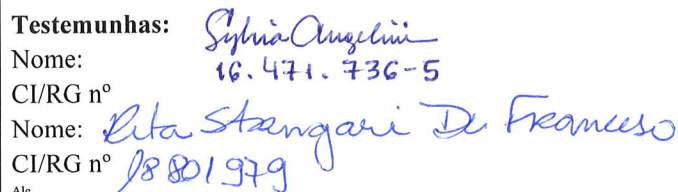 Testemunhas: Sylvia Angelini
Nome: 16.471.736-5
CI/RG nº
Nome: Rita Stangari De Francesco
CI/RG nº 18801979
Ale